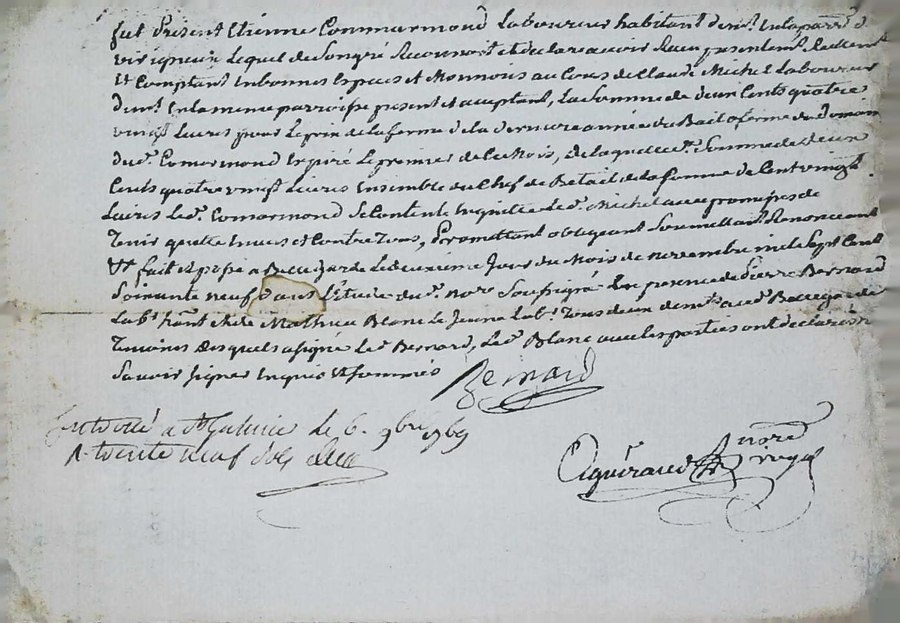 fut Present Etienne Commarmond Laboureur habitant
virigneux Lequel de Son gré Reconnoit et declare avoir Recu presentemt. Reellemt.
Et Comptant En bonnes Espèces et Monnois au Cours de Claude Michel Laboureur
En la meme parroisse present et acceptant, La Somme de deux Cents quatre
vingt Livres pour Le prix de la ferme de la derniere année du Bail a ferme du domaine
dud. Comarmond Expiré Le premier de Ce Mois, de laquelle d. Somme de deux
Cents quatre vingt Livres Ensemble du Chef de Betail de la somme de Cent vingt
Livres Led. Comarmond Se Contente En quitte Led. Michel avec promesses de
Tenir quitte Envers et Contre Tous, Promettant obligeant Soumettant Renonceant
Et fait et passé a Bellegarde Le deuxieme Jour du Mois de Novembre mil Sept Cent
Soixante neuf dans L'Etude du d. nore. Soussigné En presence de Pierre Bernard
Labr. hant. Mathieu Blanc Le Jeune Labr. Tous deux demts. aud. Bellegarde
Temoins Desquels a signé Led. Bernard, Led. Blanc avec les parties ont declaré n
Savoir Signer Enquis Et Sommés
Bernard
a St Galmier le 6. 9bre 1769
R. trente neuf sols
nore